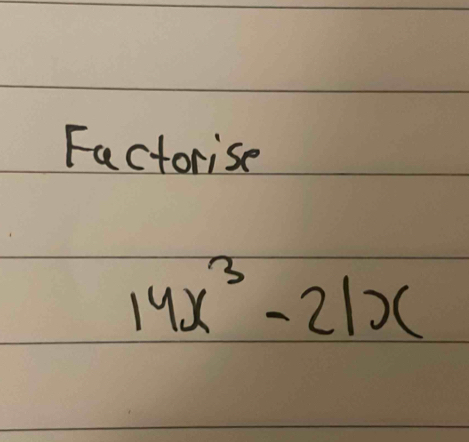 Factorise
14x³ - 21x